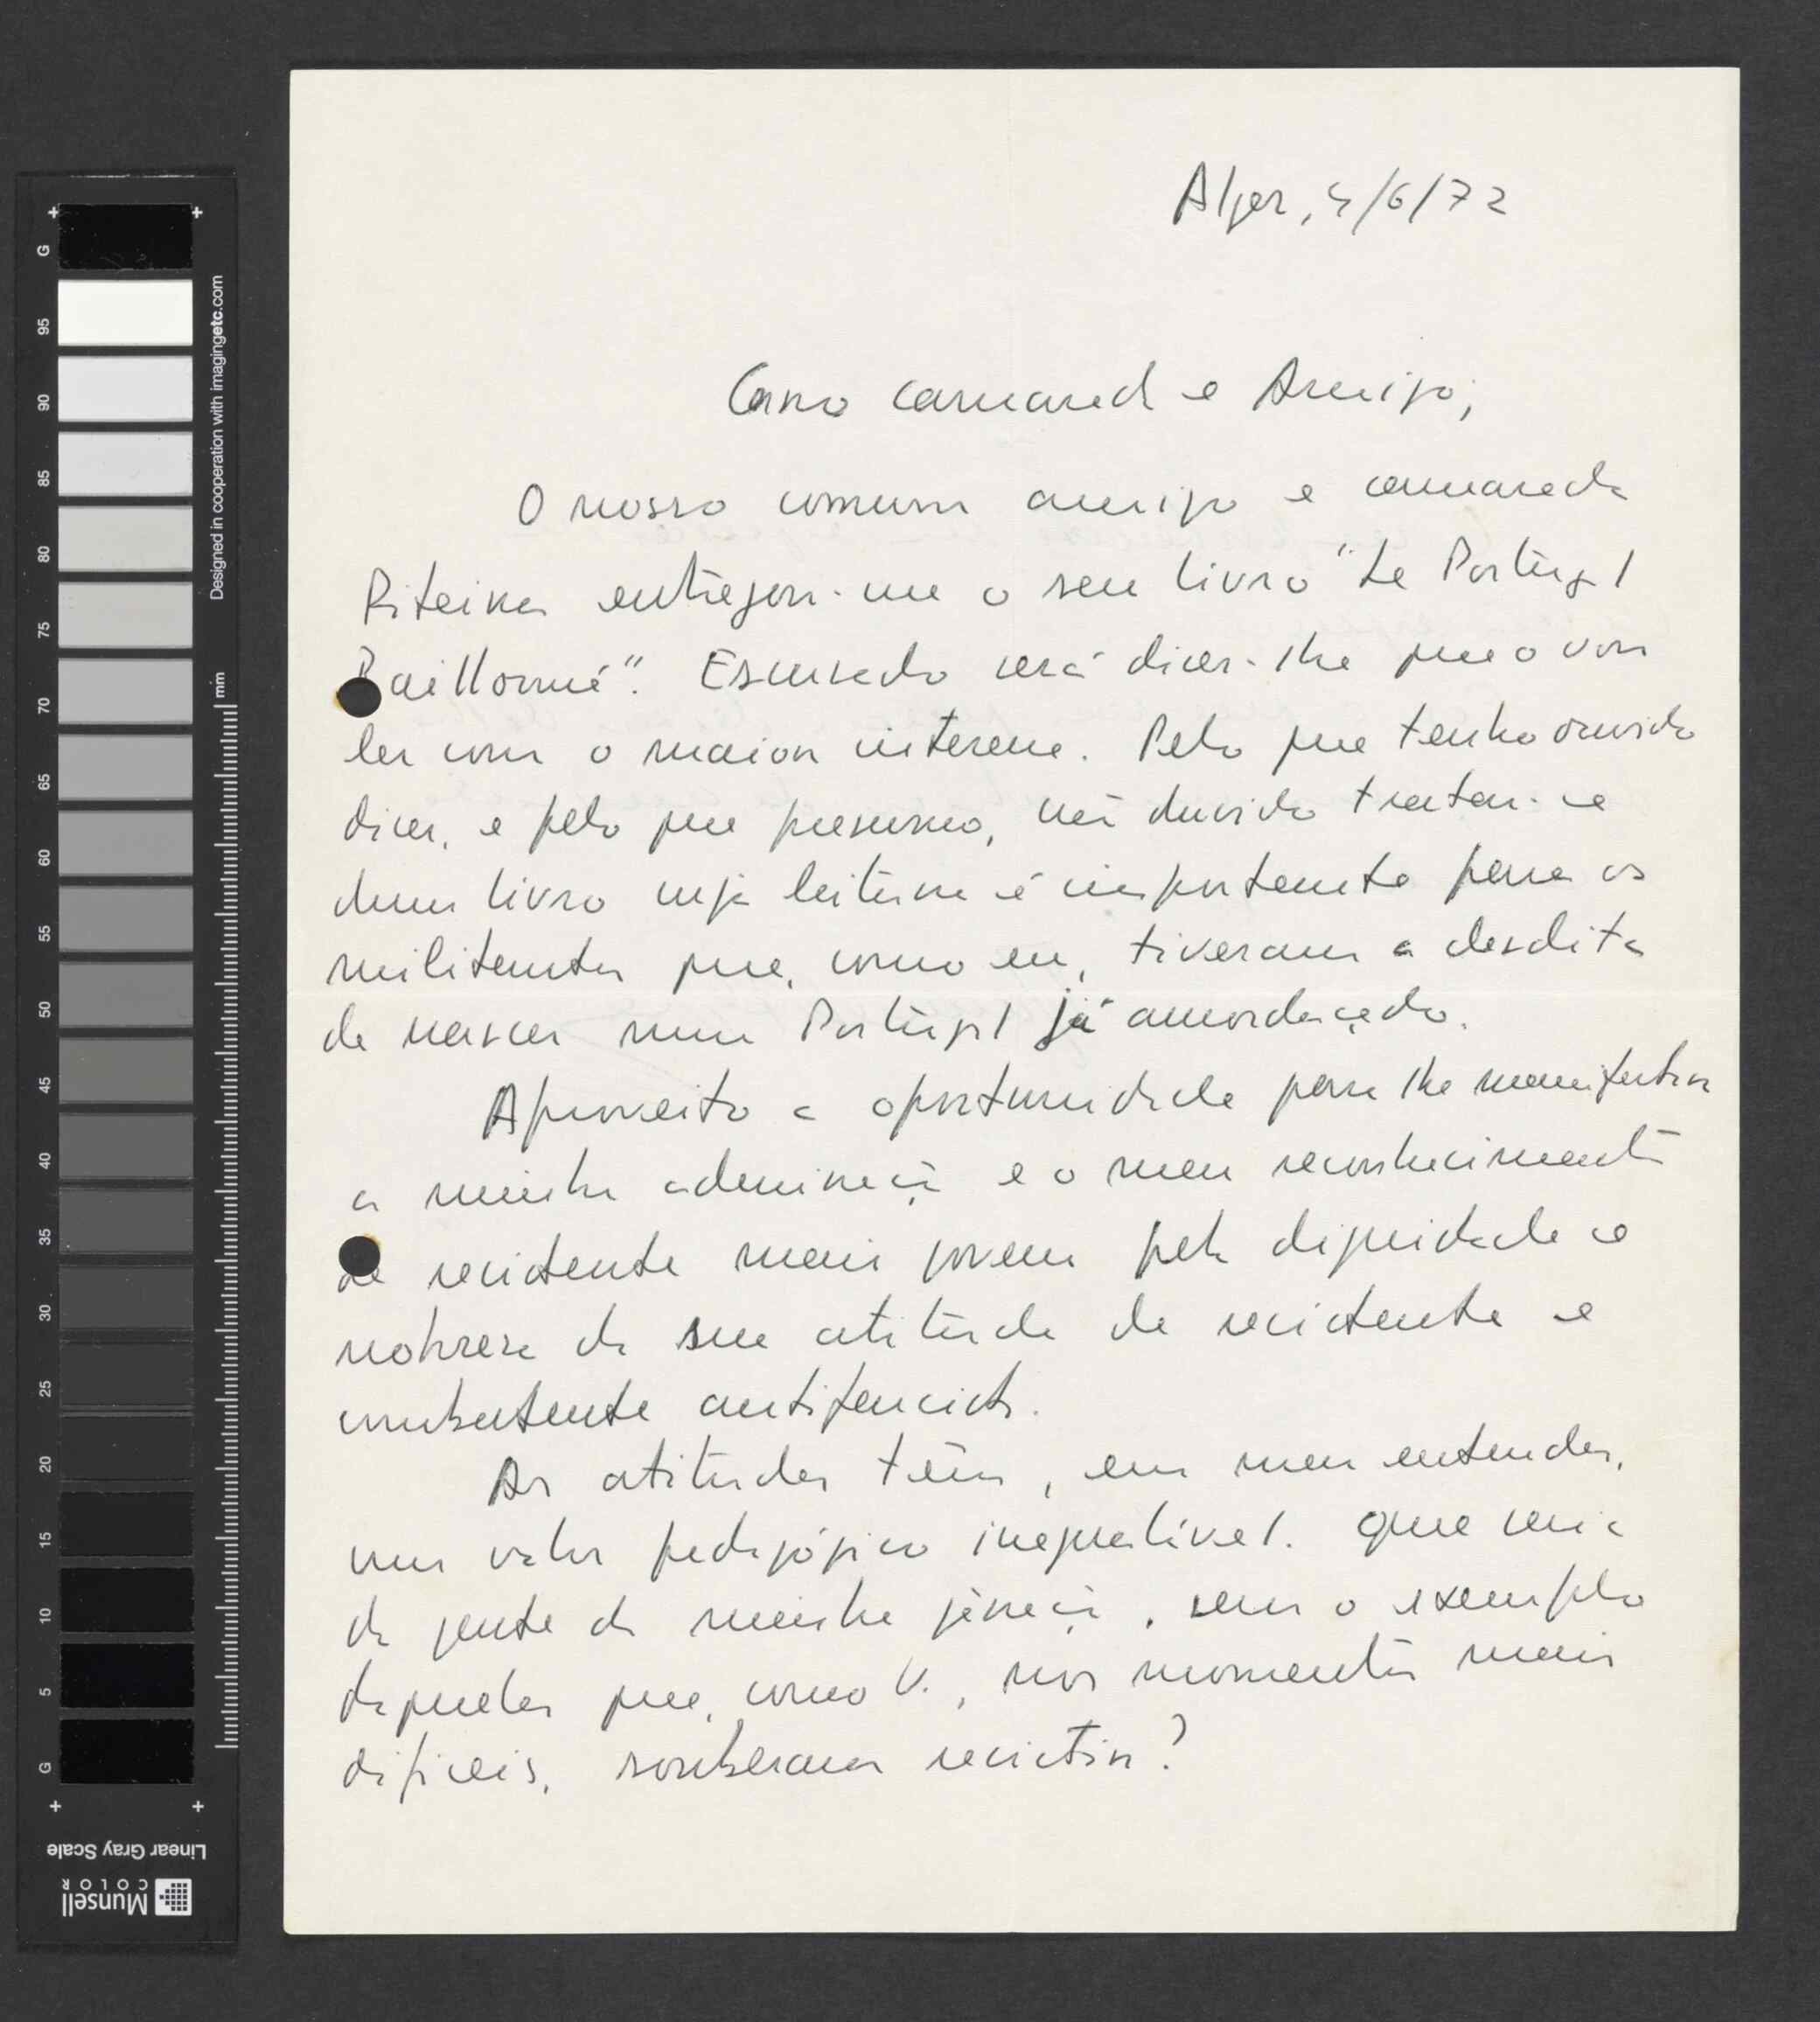 Alger, 4/6/72
Caro camarada e Amigo,
O nosso comum amigo e camarada
Piteira entregou-me o seu livro "Le Portugal
Baillonné". Escusado será dizer-lhe que o vou
ler com o maior interesse. Pelo que tenho ouvido
dizer, e pelo que presumo, não duvido tratar-se
dum livro cuja leitura é importante para os
militantes que, como eu, tiveram a desdita
de nascer num Portugal já amordaçado.
Aproveito a oportunidade para lhe manifestar
a minha admiração e o meu reconhecimento
de resistente mais jovem pela dignidade e
nobreza da sua atitude de resistente e
combatente antifascista.
As atitudes têm, em meu entender,
um valor pedagógico inegualível. Que seria
da gente da minha geração, sem o exemplo
daqueles que, como V., nos momentos mais
dificeis, souberam resistir?
G 95 90 85 80 75 70 65 60 55 50 45 40 35 30 25 20 15 10 5 G
Designed in cooperation with imagingetc.com
mm
Linear Gray Scale
Munsell
COLOR